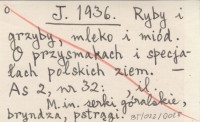 J. 1936. Ryby i
grzyby, mleko i miód.
O przysmakach i specja-
łach polskich ziem. —
As 2, nr 32. , il.
M.in. serki góralskie,
bryndza, pstrągi.